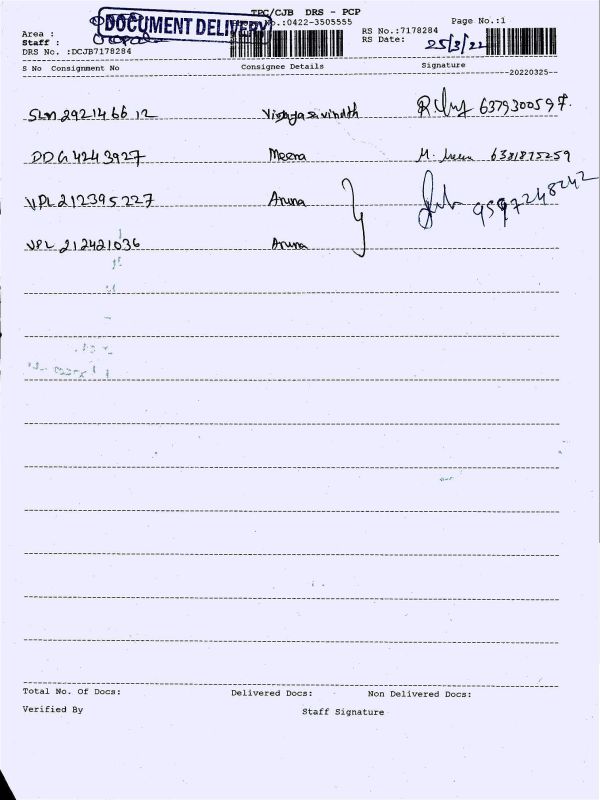 TPC/CJB DRS - PCP
DOCUMENT DELIVERY
No.:0422-3505555
Page No.:1
Area :
RS No.:7178284
Staff :
RS Date: 25/3/22
DRS No. :DCJB7178284
S No Consignment No Consignee Details Signature
--20220325--
SLM 292146612 6379300597.
DDG 4243927 Meena M. 6381875259
VPL 212395227 Aruna 9597248242
VPL 212421036 Aruna
Total No. Of Docs: Delivered Docs: Non Delivered Docs:
Verified By Staff Signature